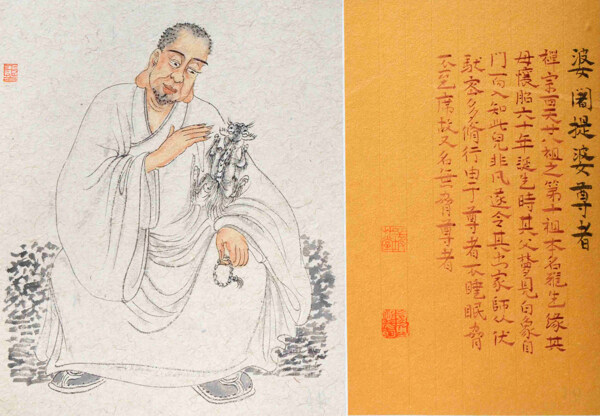 婆闍提婆尊者
禪宗西天廿八祖之第十祖本名難生緣其
母懷胎六十年诞生時其父梦見白象自
门而入知此兒非凡遂令其出家師以伏
馱密多脩行由于尊者不睡眠脅
不至席故又名無脅尊者